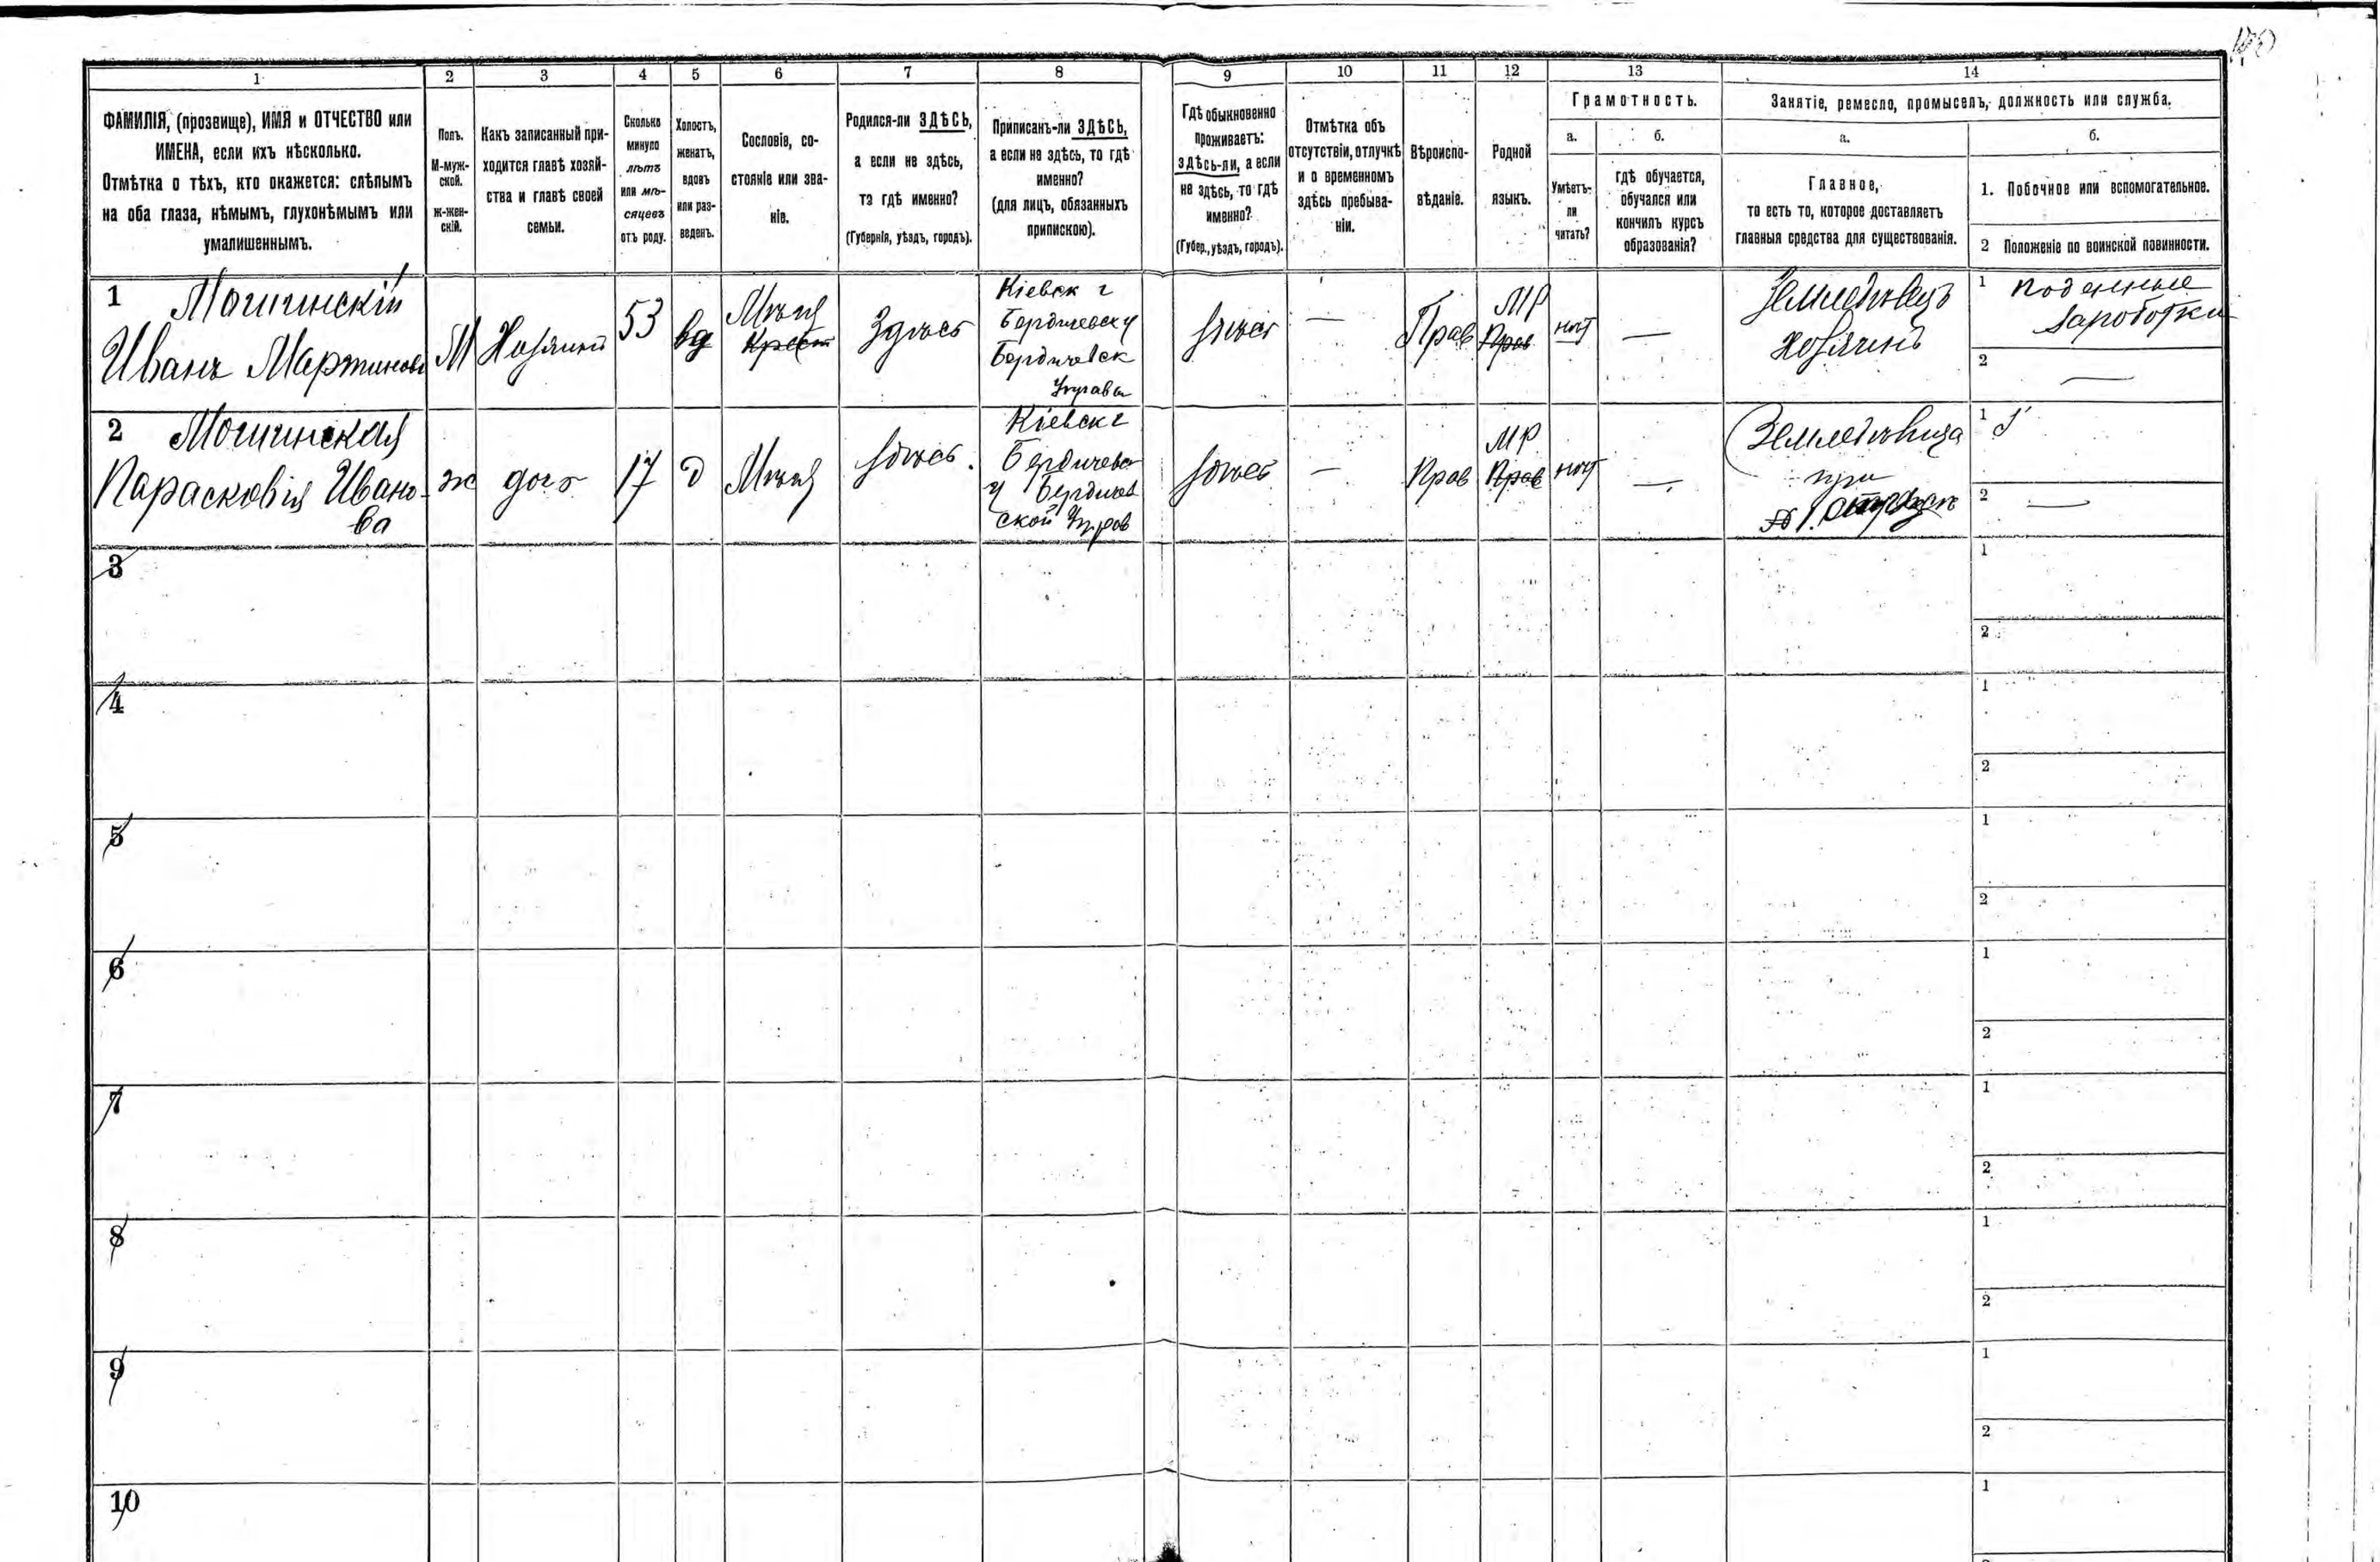 1
2
3
4
5
6
7
8
9
10
11
12
13
14
ФАМИЛІЯ, (прозвище), ИМЯ и ОТЧЕСТВО или
ИМЕНА, если ихъ нѣсколько.
Отмѣтка о тѣхъ, кто окажется: слѣпымъ
на оба глаза, нѣмымъ, глухонѣмымъ или
умалишеннымъ.
Полъ.
М-муж-
ской.
ж-жен-
скій.
Какъ записанный при-
ходится главѣ хозяй-
ства и главѣ своей
семьи.
Сколько
минуло
лѣтъ
или мѣ-
сяцевъ
отъ роду.
Холостъ,
женатъ,
вдовъ
или раз-
веденъ.
Сословіе, со-
стояніе или зва-
ніе.
Родился-ли ЗДѢСЬ,
а если не здѣсь,
то гдѣ именно?
(Губернія, уѣздъ, городъ).
Приписанъ-ли ЗДѢСЬ,
а если не здѣсь, то гдѣ
именно?
(для лицъ, обязанныхъ
припискою).
Гдѣ обыкновенно
проживаетъ:
здѣсь-ли, а если
не здѣсь, то гдѣ
именно?
(Губер., уѣздъ, городъ).
Отмѣтка объ
отсутствіи, отлучкѣ
и о временномъ
здѣсь пребыва-
ніи.
Вѣроиспо-
вѣданіе.
Родной
языкъ.
Грамотность.
а.
Умѣетъ-
ли
читать?
б.
гдѣ обучается,
обучался или
кончилъ курсъ
образованія?
Занятіе, ремесло, промыселъ, должность или служба.
а.
Главное,
то есть то, которое доставляетъ
главныя средства для существованія.
б.
1. Побочное или вспомогательное.
2 Положеніе по воинской повинности.
1
Иванъ Мартиновъ
М
Хозяинъ
53
вд
Мѣщ
Крест
Здѣсь
Кіевск г
Бердичевск у
Бердичевск
Управа
Здѣсь
—
Прав
МР
Прав
нѣт
—
Земледѣлецъ
хозяинъ
1 Поденные
заработки
2 —
2
Парасковія Ивано-
ва
ж
доч
17
д
Мѣщ
Здѣсь.
Кіевск г
Бердичев
у Бердичев
ской Управ
Здѣсь
—
Прав
МР
Прав
нѣт
—
Земледѣлица
при
1
2 —
3
1
2
4
1
2
5
1
2
6
1
2
7
1
2
8
1
2
9
1
2
10
1